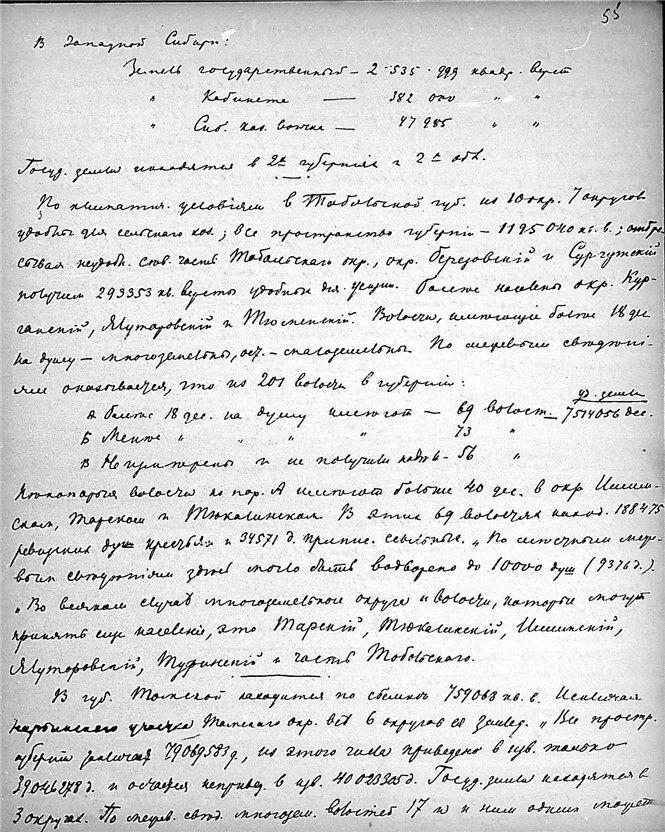 55
В Западной Сибири:
Земель государственных — 2.535.999 квадр. верст
" Кабинета — 382 000 " "
" Сиб. каз. войска — 47 985 " "
Госуд. земли находятся в 2х губерниях и 2х обл.
По климатич. условіям в Тобольской губ. из 10 окр. 7 округов
удобны для сельского хоз.; все пространство губерніи — 1195040 кв. в.; отбра-
сывая неудобн. сѣв. часть Тобольского окр., окр. Березовскій и Сургутскій
получим 293353 кв. версты удобных для Болѣе населены окр. Кур-
ганскій, Ялуторовскій и Тюменскій. Волости, имѣющіе болѣе 18 дес
на душу — многоземельны, ост. — малоземельны. По межевым свѣдѣні-
ям оказывается, что из 201 волости в губерніи:
уд. земли
А Болѣе 18 дес. на душу имѣют — 69 волост. — 7514056 дес.
Б Менѣе " " " " 73 "
В Не примерены и не получили надѣл — 56 "
Нѣкоторые волости из А имѣют больше 40 дес. в окр Ишим-
ском, Тарском и Тюкалинском В этих 69 волостях наход. 188475
ревизских душ крестьян и 34571 д. припис. ссыльных. " По неточным меже-
вым свѣдѣніям здѣсь могло быть водворено до 10000 душ (9376 д.).
" Во всяком случаѣ многоземельные округа и волости, которые могут
принять еще населеніе, это Тарскій, Тюкалинскій, Ишимскій,
Ялуторовскій, Туринскій и часть Тобольского.
В губ. Томской находится по 759068 кв. в. Исключая
участка Томского окр. всѣ 6 округов " Все простр.
губерніи 79069583 д, из этого числа приведено в изв. только
39046278 д. и остается неприв. в изв. 40023305 д. Госуд. земли находятся в
3 округах. По межев. свѣд. многозем. волостей 17 и к ним одних может